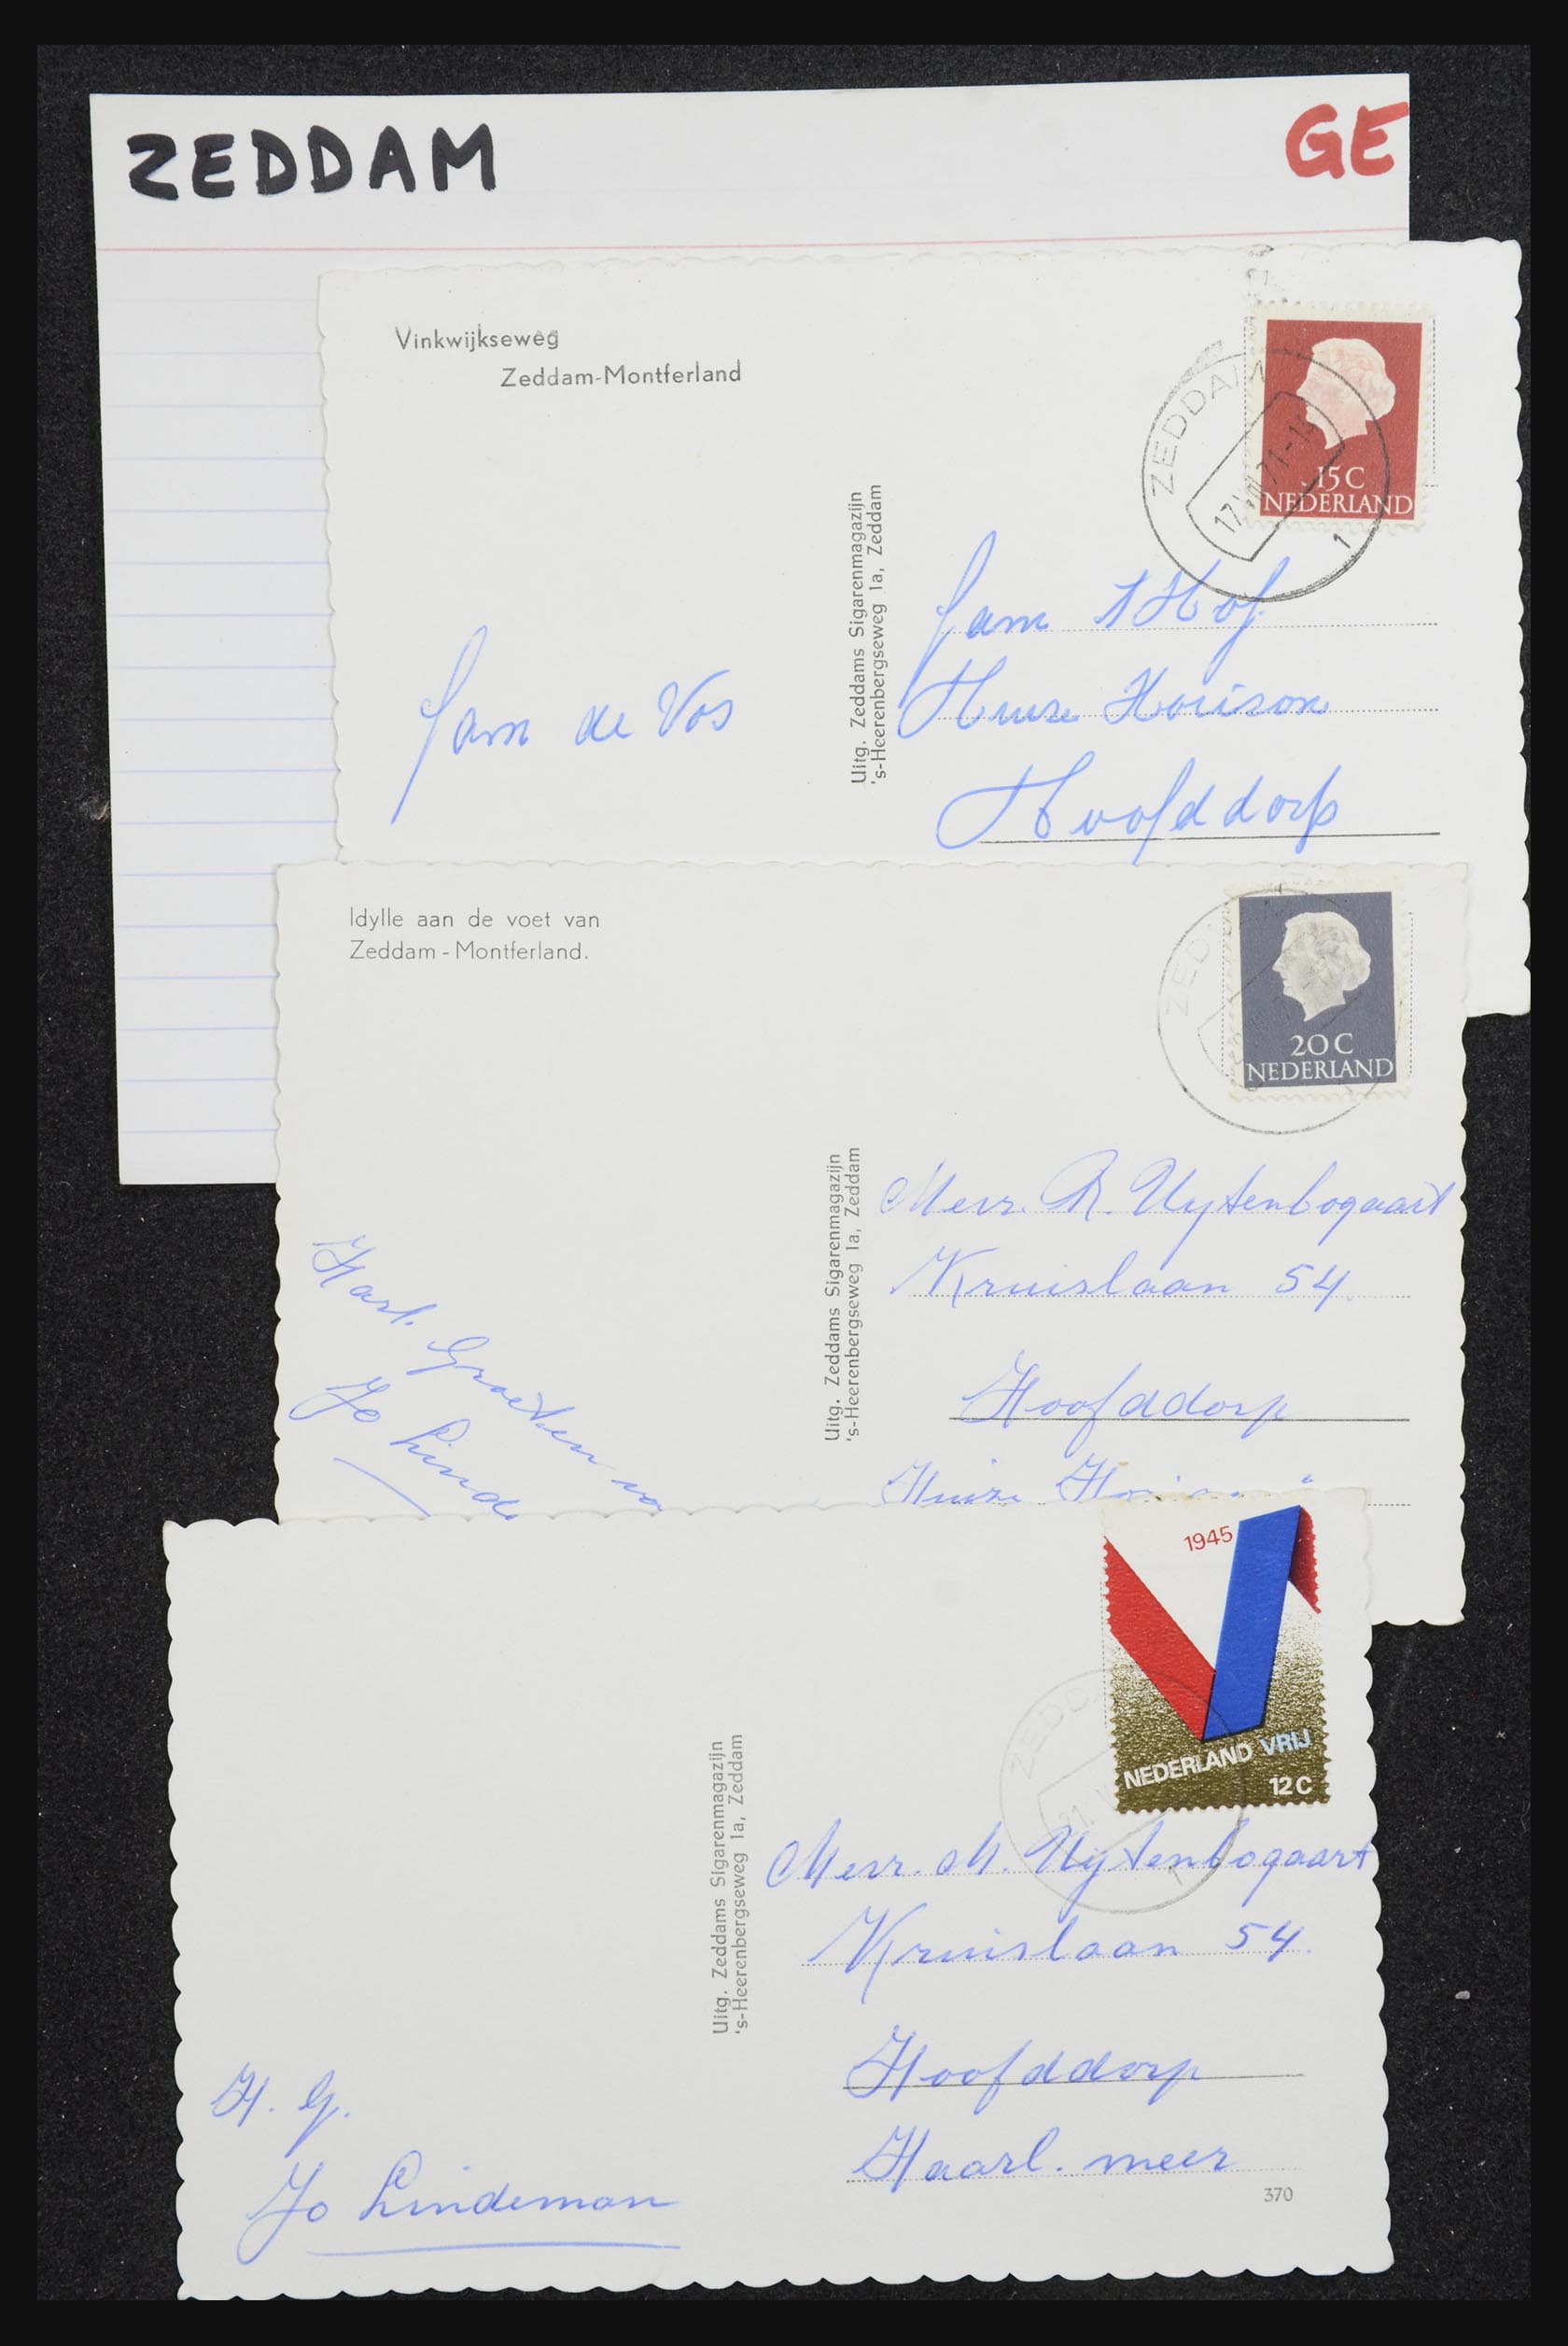 ZEDDAM
GE
Vinkwijkseweg
Zeddam-Montferland
ZEDDAM
15 C
NEDERLAND
1
Uitg. Zeddams Sigarenmagazijn
's-Heerenbergseweg 1a, Zeddam
Fam de Vos
Fam 't Hof
Huize Horison
Hoofddorp
Idylle aan de voet van
Zeddam - Montferland.
20 C
NEDERLAND
Uitg. Zeddams Sigarenmagazijn
's-Heerenbergseweg 1a, Zeddam
Hart. Groeten
Jo Lind
Mevr. R. Uytenbogaart
Kruislaan 54.
Hoofddorp
Huize
1945
NEDERLAND VRIJ
12 C
ZEDDA
21.
1
Uitg. Zeddams Sigarenmagazijn
's-Heerenbergseweg 1a, Zeddam
H. G.
Jo Lindeman
Mevr. M. Uytenbogaart
Kruislaan 54.
Hoofddorp
Haarl. meer
370